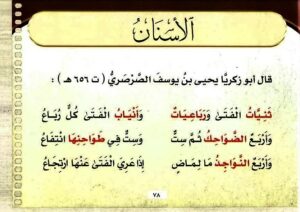 ٱلْأَسْنَانُ
قال أبو زكريَّا يحيى بنُ يوسفَ الصَّرْصَرِيُّ ( ت ٦٥٦ هـ ) :
ثَنِيَّاتُ الْفَتَىٰ وَرَبَاعِيَاتٌ وَأَنْيَابُ الْفَتَىٰ كُلٌّ رُبَاعُ
وَأَرْبَعٌ الضَّوَاحِكُ ثُمَّ سِتٌّ وَسِتٌّ فِي طَوَاحِنِهَا انْتِفَاعُ
وَأَرْبَعٌ النَّوَاجِذُ مَا لِمَاضٍ إِذَا عَرِيَ الْفَتَىٰ عَنْهَا ارْتِجَاعُ
٧٨